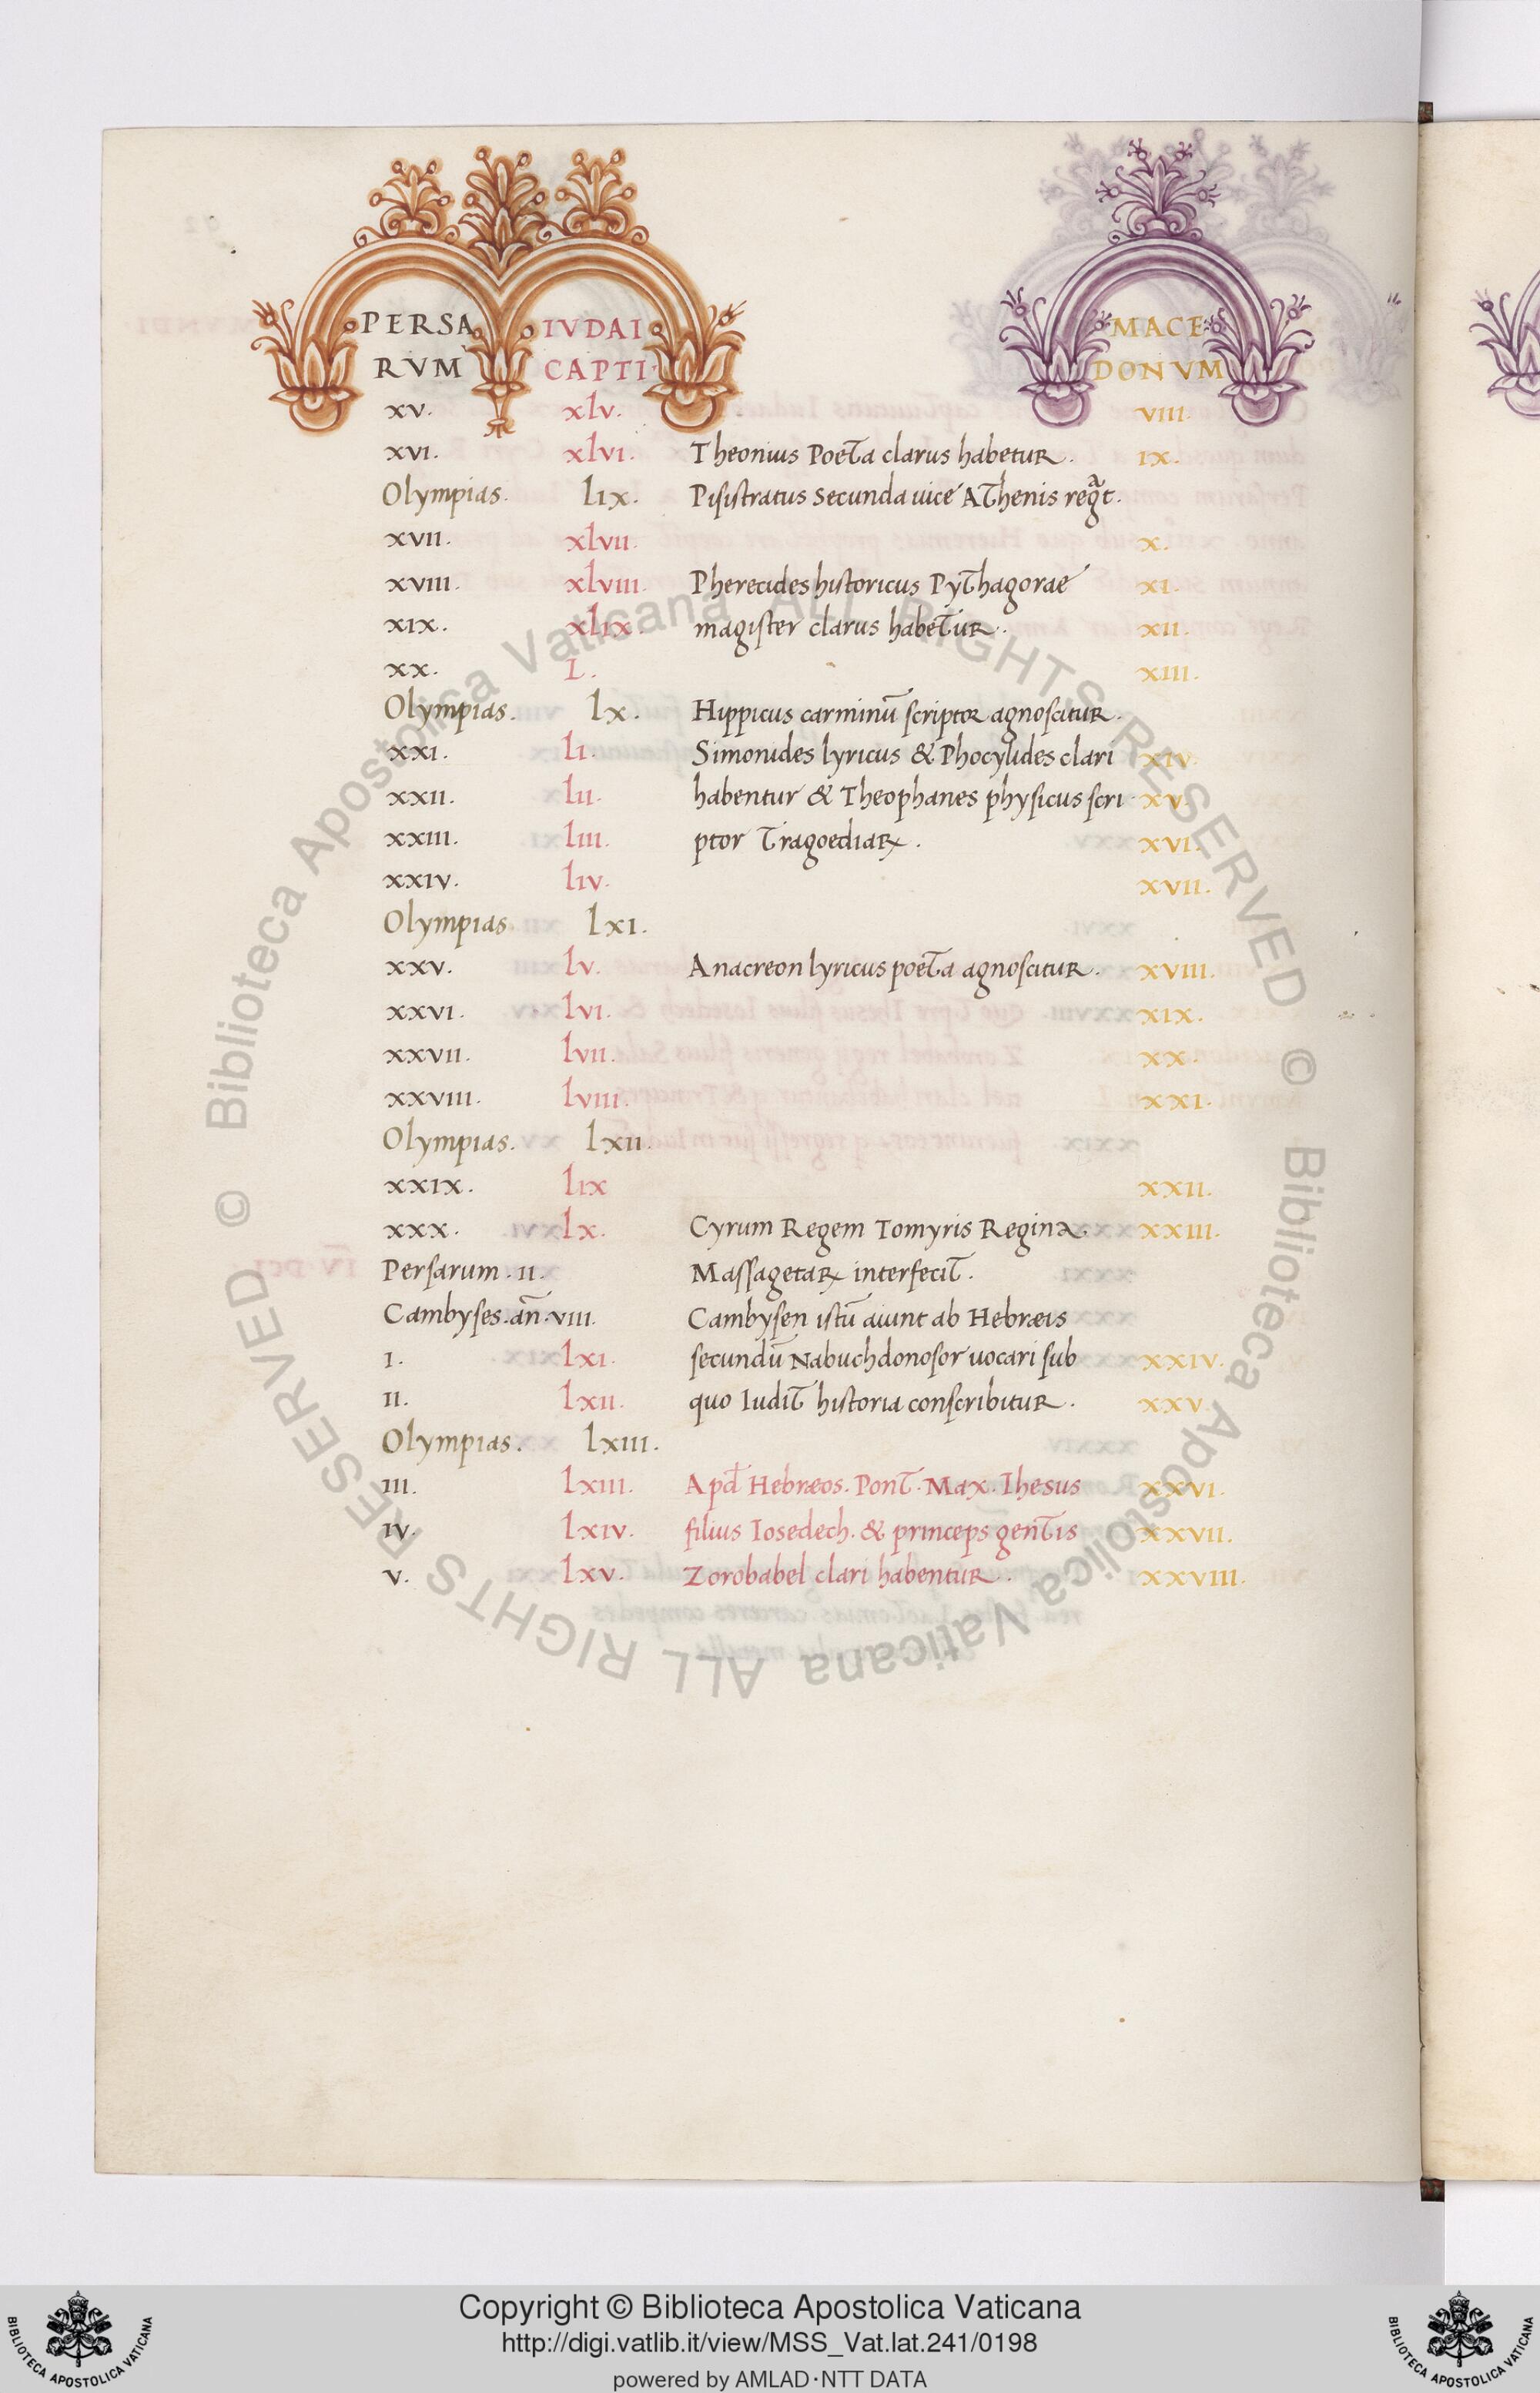 PERSA IVDAI MACE
RVM CAPTI DONVM
xv. xlv. VIII.
xvi. xlvi. Theonius Poeta clarus habetur. IX.
Olympias. lix. Pisistratus secunda uice Athenis regᵃt.
xvii. xlvii. X.
xviii. xlviii. Pherecides historicus Pythagorae XI.
xix. xlix. magister clarus habetur. XII.
xx. L. XIII.
Olympias. lx. Hippicus carminū scriptor agnoscitur.
xxi. li. Simonides lyricus & Phocylides clari XIV.
xxii. lii. habentur & Theophanes physicus scri XV.
xxiii. liii. ptor Tragoediaꝝ. XVI.
xxiv. liv. XVII.
Olympias lxi.
xxv. lv. Anacreon lyricus poeta agnoscitur. XVIII.
xxvi. lvi. XIX.
xxvii. lvii. XX.
xxviii. lviii. XXI.
Olympias. lxii.
xxix. lix XXII.
xxx. lx. Cyrum Regem Tomyris Regina. XXIII.
Persarum. II. Massagetaꝝ interfecit.
Cambyses. an̄. viii. Cambysen istū aiunt ab Hebræis
I. lxi. secundū Nabuchdonosor uocari sub XXIV.
II. lxii. quo Iudit historia conscribitur. XXV.
Olympias. lxiii.
III. lxiii. Apd̄ Hebræos. Pont. Max. Ihesus XXVI.
IV. lxiv. filius Iosedech. & princeps gentis XXVII.
V. lxv. Zorobabel clari habentur. XXVIII.
© Biblioteca Apostolica Vaticana ALL RIGHTS RESERVED
© Biblioteca Apostolica Vaticana ALL RIGHTS RESERVED
Copyright © Biblioteca Apostolica Vaticana
http://digi.vatlib.it/view/MSS_Vat.lat.241/0198
powered by AMLAD·NTT DATA
BIBLIOTECA APOSTOLICA VATICANA
BIBLIOTECA APOSTOLICA VATICANA